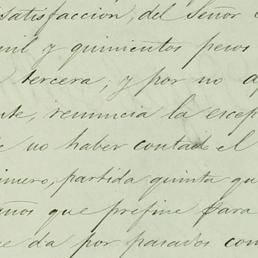 satisfaccion, del Señor
mil y quinientos pesos
tercera; y por no
renuncia la
no haber contad el
partida quinta
que prefine para
da por pasados